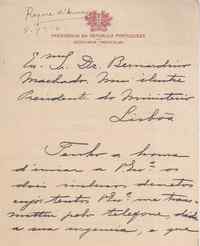 PRESIDENCIA DA REPUBLICA PORTUGUESA
SECRETARIA PARTICULAR
Ex.mo Sr. Dr. Bernardino
Machado. Meu ilustre
Presidente do Ministerio
Lisbôa
Tenho a honra
d'enviar a V. Ex.ª os
dois inclusos decretos
cujo texto V. Ex.ª me trans-
mitiu pelo telefone, dada
a sua urgencia, e que